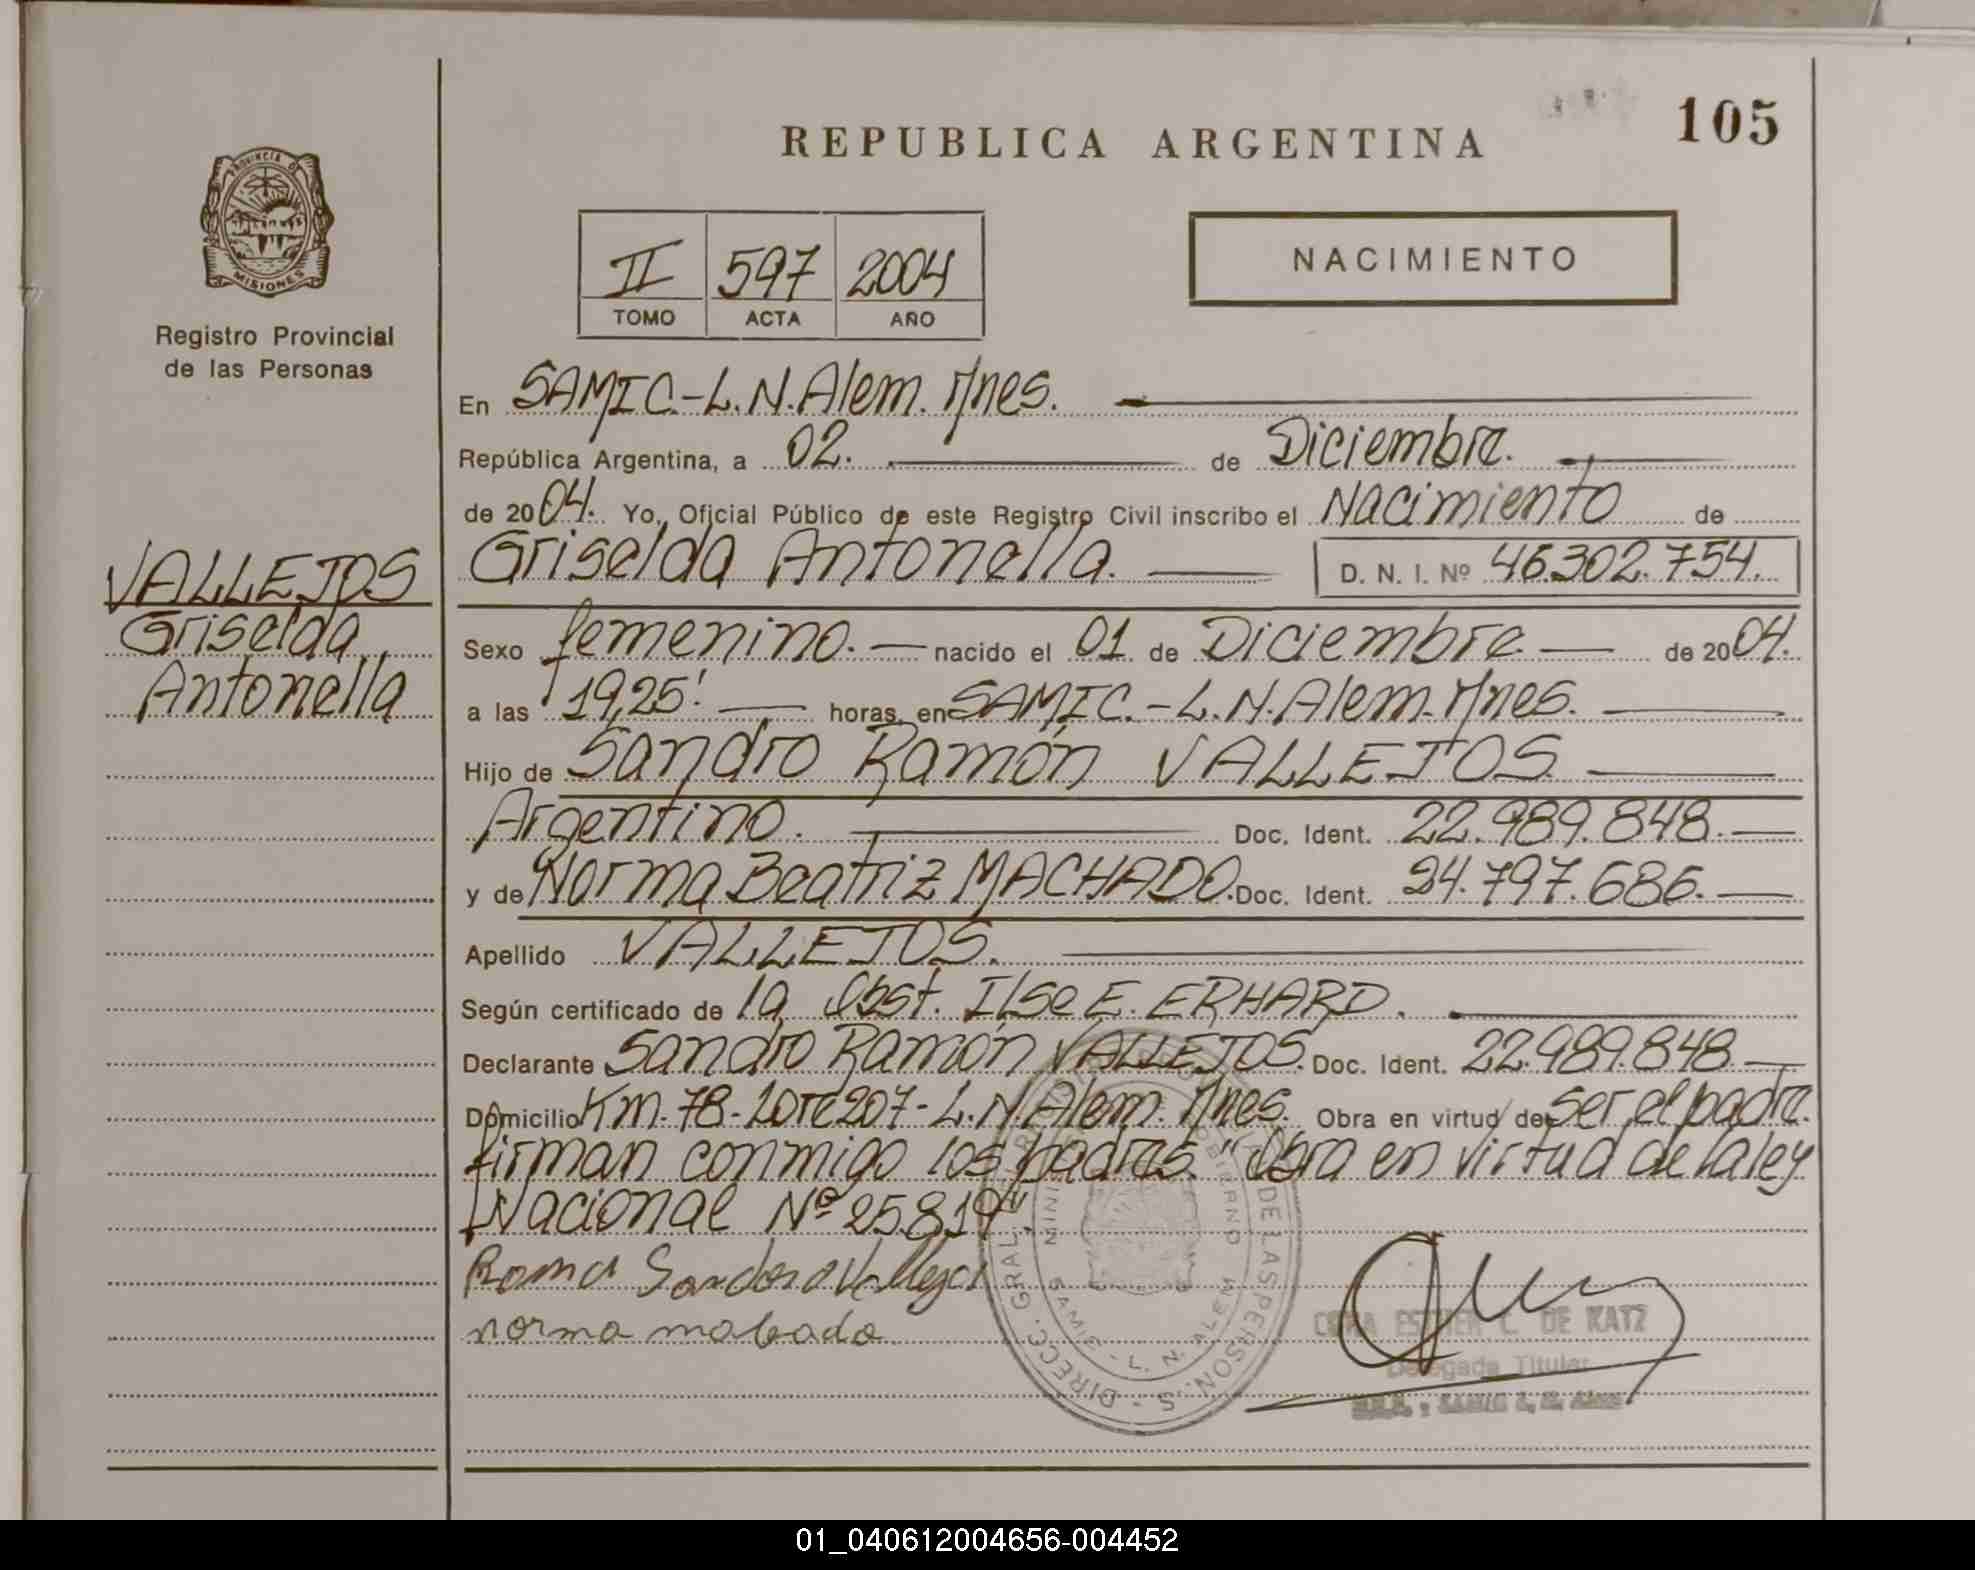 105
REPUBLICA ARGENTINA
PROVINCIA DE
MISIONES
Registro Provincial
de las Personas
II 597 2004
TOMO ACTA AÑO
NACIMIENTO
En SAMIC.-L.N.Alem. Mnes.
República Argentina, a 02. de Diciembre.
de 2004. Yo, Oficial Público de este Registro Civil inscribo el Nacimiento de
Griselda Antonella. D. N. I. Nº 46.302.754.
VALLEJOS
Griselda
Antonella
Sexo femenino. nacido el 01 de Diciembre de 2004.
a las 19,25' horas, en SAMIC.-L.N.Alem. Mnes.
Hijo de Sandro Ramón VALLEJOS
Argentino. Doc. Ident. 22.989.848.
y de Norma Beatriz MACHADO. Doc. Ident. 24.797.686.
Apellido VALLEJOS.
Según certificado de la Obst. Ilse E. ERHARD.
Declarante Sandro Ramón VALLEJOS. Doc. Ident. 22.989.848
Domicilio Km. 78-Lote 207-L.N.Alem. Mnes. Obra en virtud de ser el padre.
firman conmigo los padres. "Obra en virtud de la ley
Nacional Nº 25.819".
norma
DIRECC. GRAL. DE LAS PERSON.S
GOBIERNO
SAMIC - L. N. ALEM
ESTHER C. DE KATZ
Delegada Titular
01_040612004656-004452